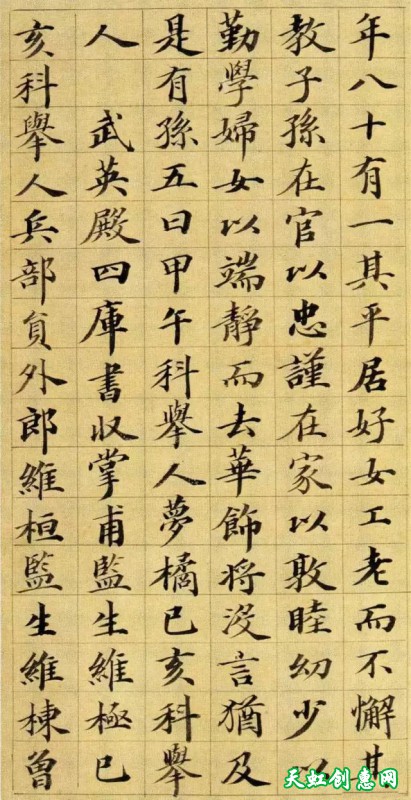 年八十有一其平居好女工老而不懈其
教子孫在官以忠謹在家以敦睦幼少以
勤學婦女以端靜而去華飾将沒言猶及
是有孫五曰甲午科舉人夢橘已亥科舉
人　武英殿四庫書収掌甫監生維極已
亥科舉人兵部負外郎維桓監生維棟曾
天虹创惠网